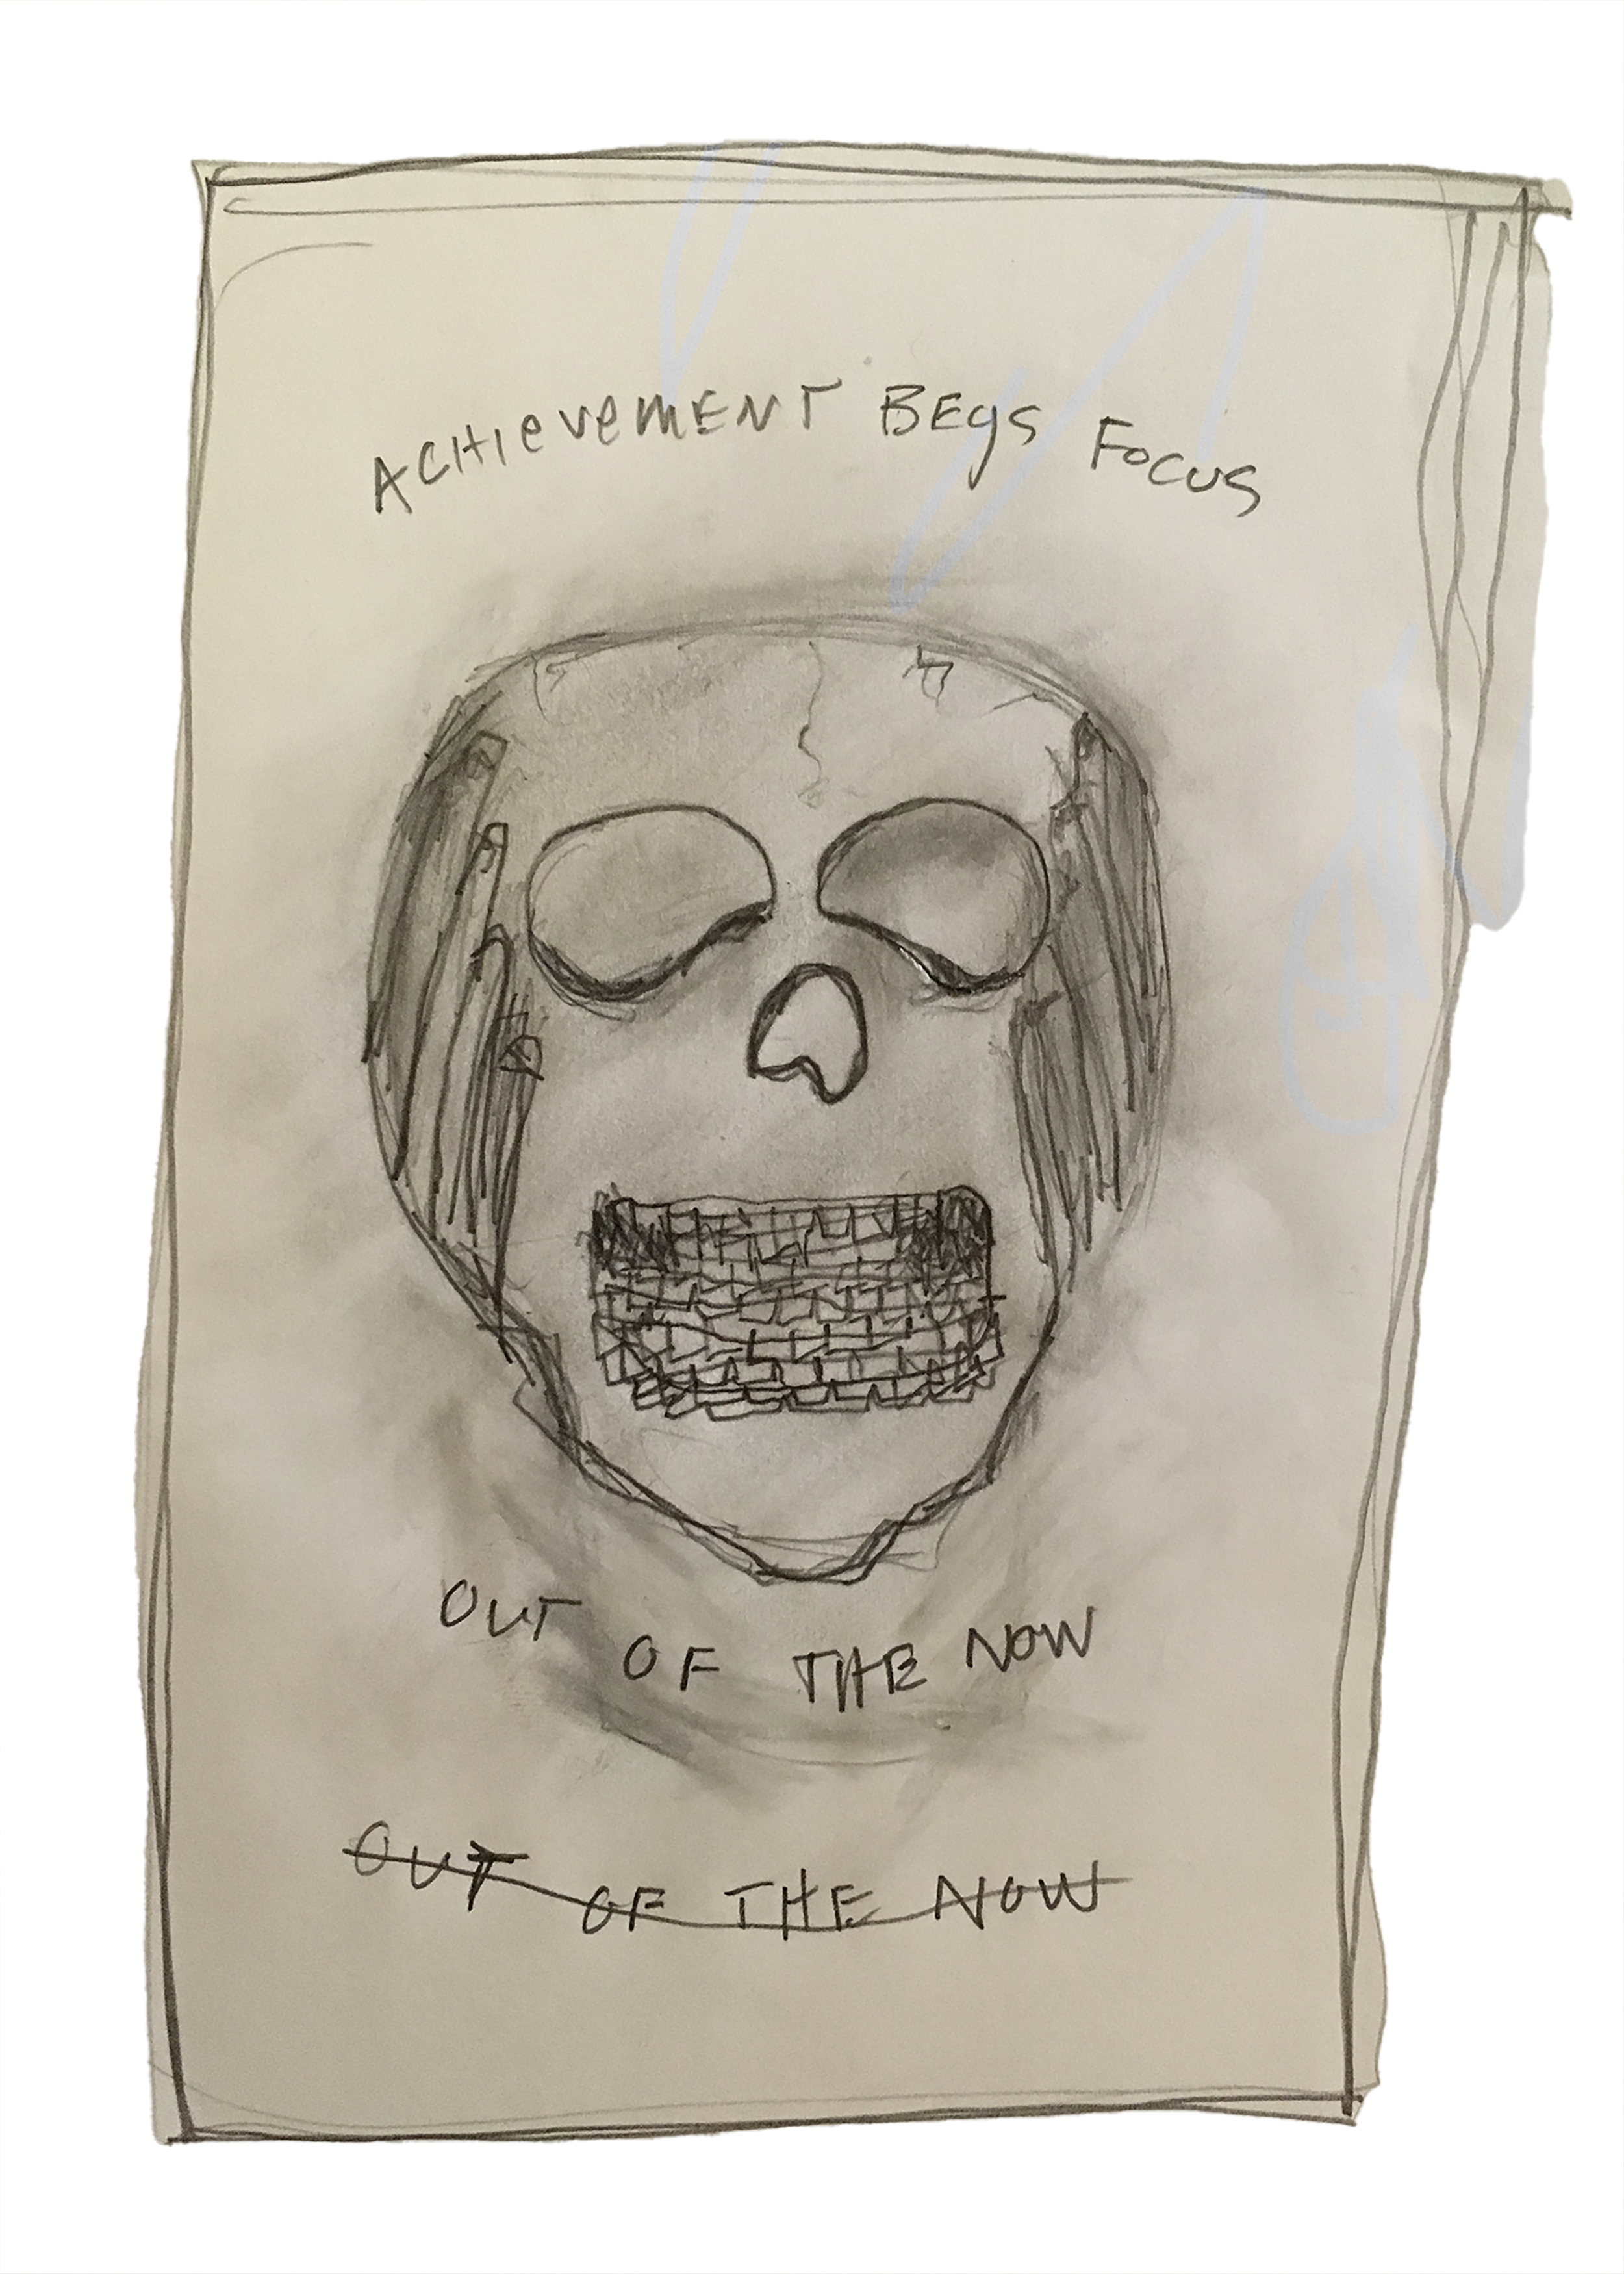 ACHIEVEMENT BEGS FOCUS
OUT OF THE NOW
OUT OF THE NOW